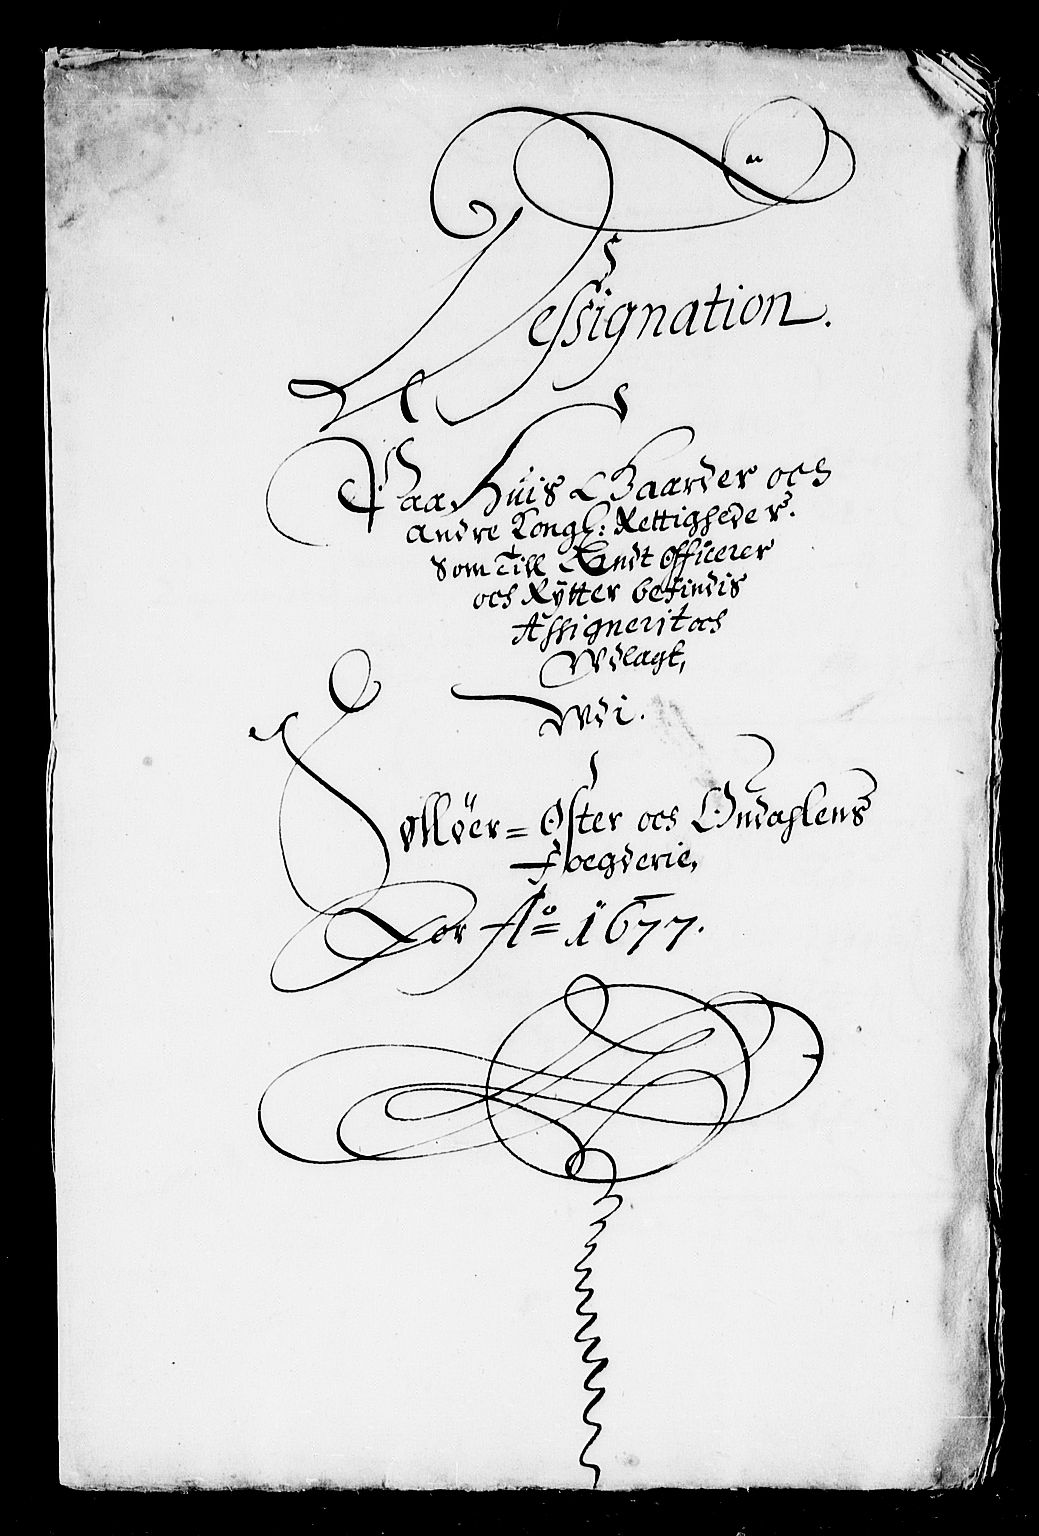 Dessignation.
Paa Huis Gaarder och
andre Kongl: Rettigheder.
Som Till Endt Officerer
och Rÿtter befindis
Assignerit och
Wdlagt,
Wdi.
Solløer = Øster och Oudahlens
Foegderie,
For Ao 1677.